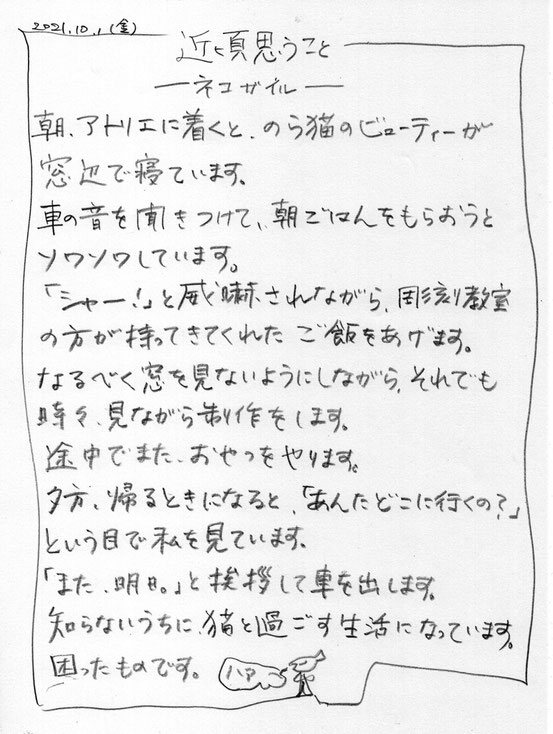 2021.10.1(金)
近頃思うこと
―ネコガイル―
朝、アトリエに着くと、のら猫のビューティーが
窓辺で寝ています。
車の音を聞きつけて、朝ごはんをもらおうと
ソワソワしています。
「シャー!」と威嚇されながら、彫刻教室
の方が持ってきてくれたご飯をあげます。
なるべく窓を見ないようにしながら、それでも
時々、見ながら制作をします。
途中でまた、おやつをやります。
夕方、帰るときになると、「あんたどこに行くの?」
という目で私を見ています。
「また、明日。」と挨拶して車を出します。
知らないうちに、猫と過ごす生活になっています。
困ったものです。
ハァ